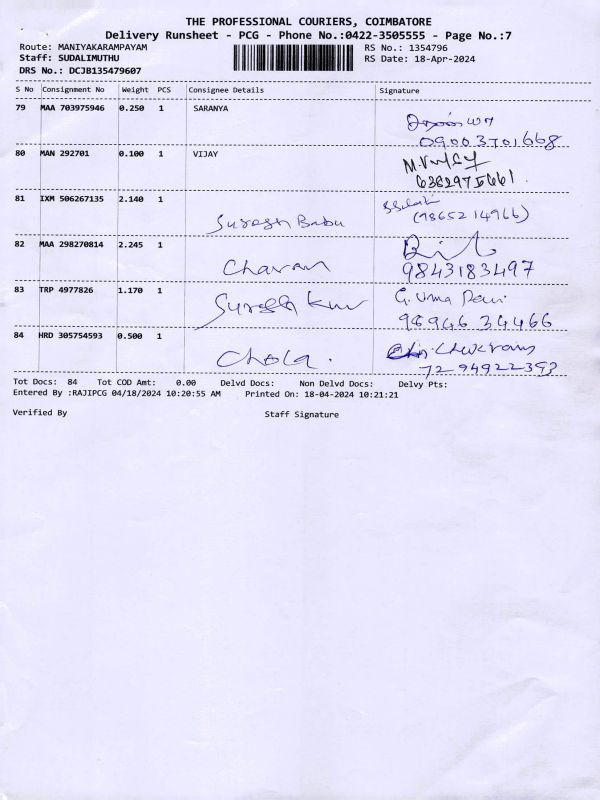 THE PROFESSIONAL COURIERS, COIMBATORE
Delivery Runsheet - PCG - Phone No.:0422-3505555 - Page No.:7
Route: MANIYAKARAMPAYAM RS No.: 1354796
Staff: SUDALIMUTHU RS Date: 18-Apr-2024
DRS No.: DCJB135479607
S No Consignment No Weight PCS Consignee Details Signature
79 MAA 703975946 0.250 1 SARANYA
09003701668
80 MAN 292701 0.100 1 VIJAY
6382975661
81 IXM 506267135 2.140 1
Suresh Babu (9865214966)
82 MAA 298270814 2.245 1
Charan 9843183497
83 TRP 4977826 1.170 1 G. Uma Devi
Suresh Kum 98946 34466
84 HRD 305754593 0.500 1
Chola. 7294922393
Tot Docs: 84 Tot COD Amt: 0.00 Delvd Docs: Non Delvd Docs: Delvy Pts:
Entered By :RAJIPCG 04/18/2024 10:20:55 AM Printed On: 18-04-2024 10:21:21
Verified By Staff Signature